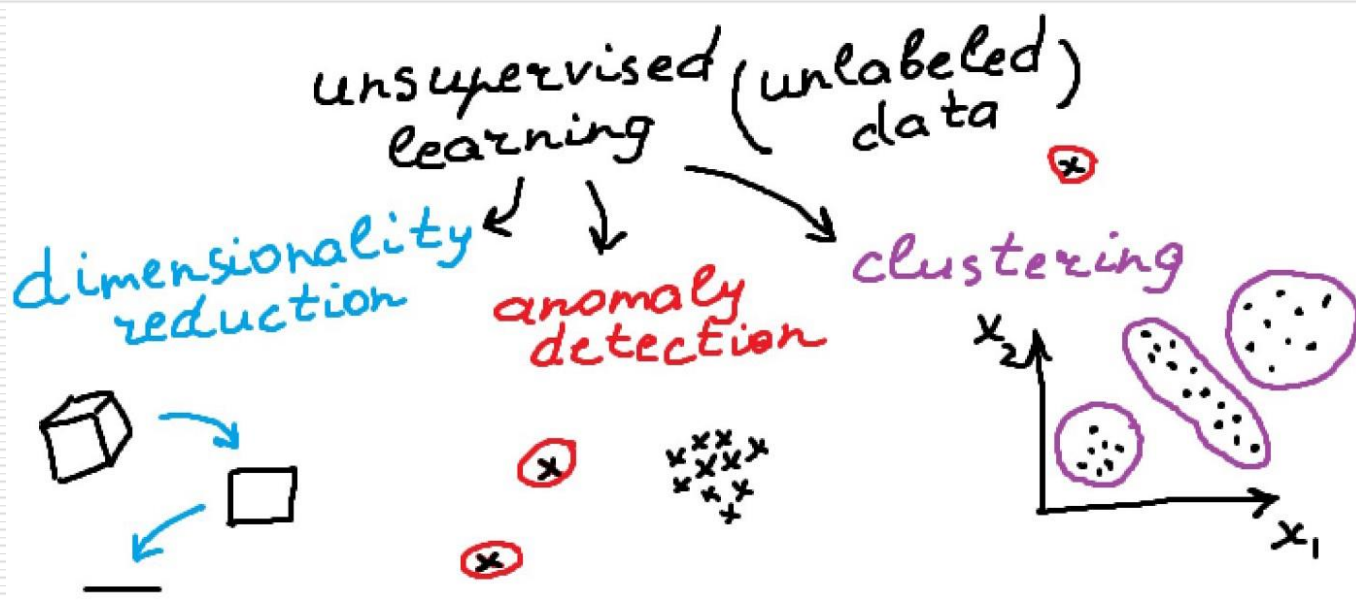 unsupervised (unlabeled)
learning data
dimensionality
reduction
anomaly
detection
clustering
x2
x1